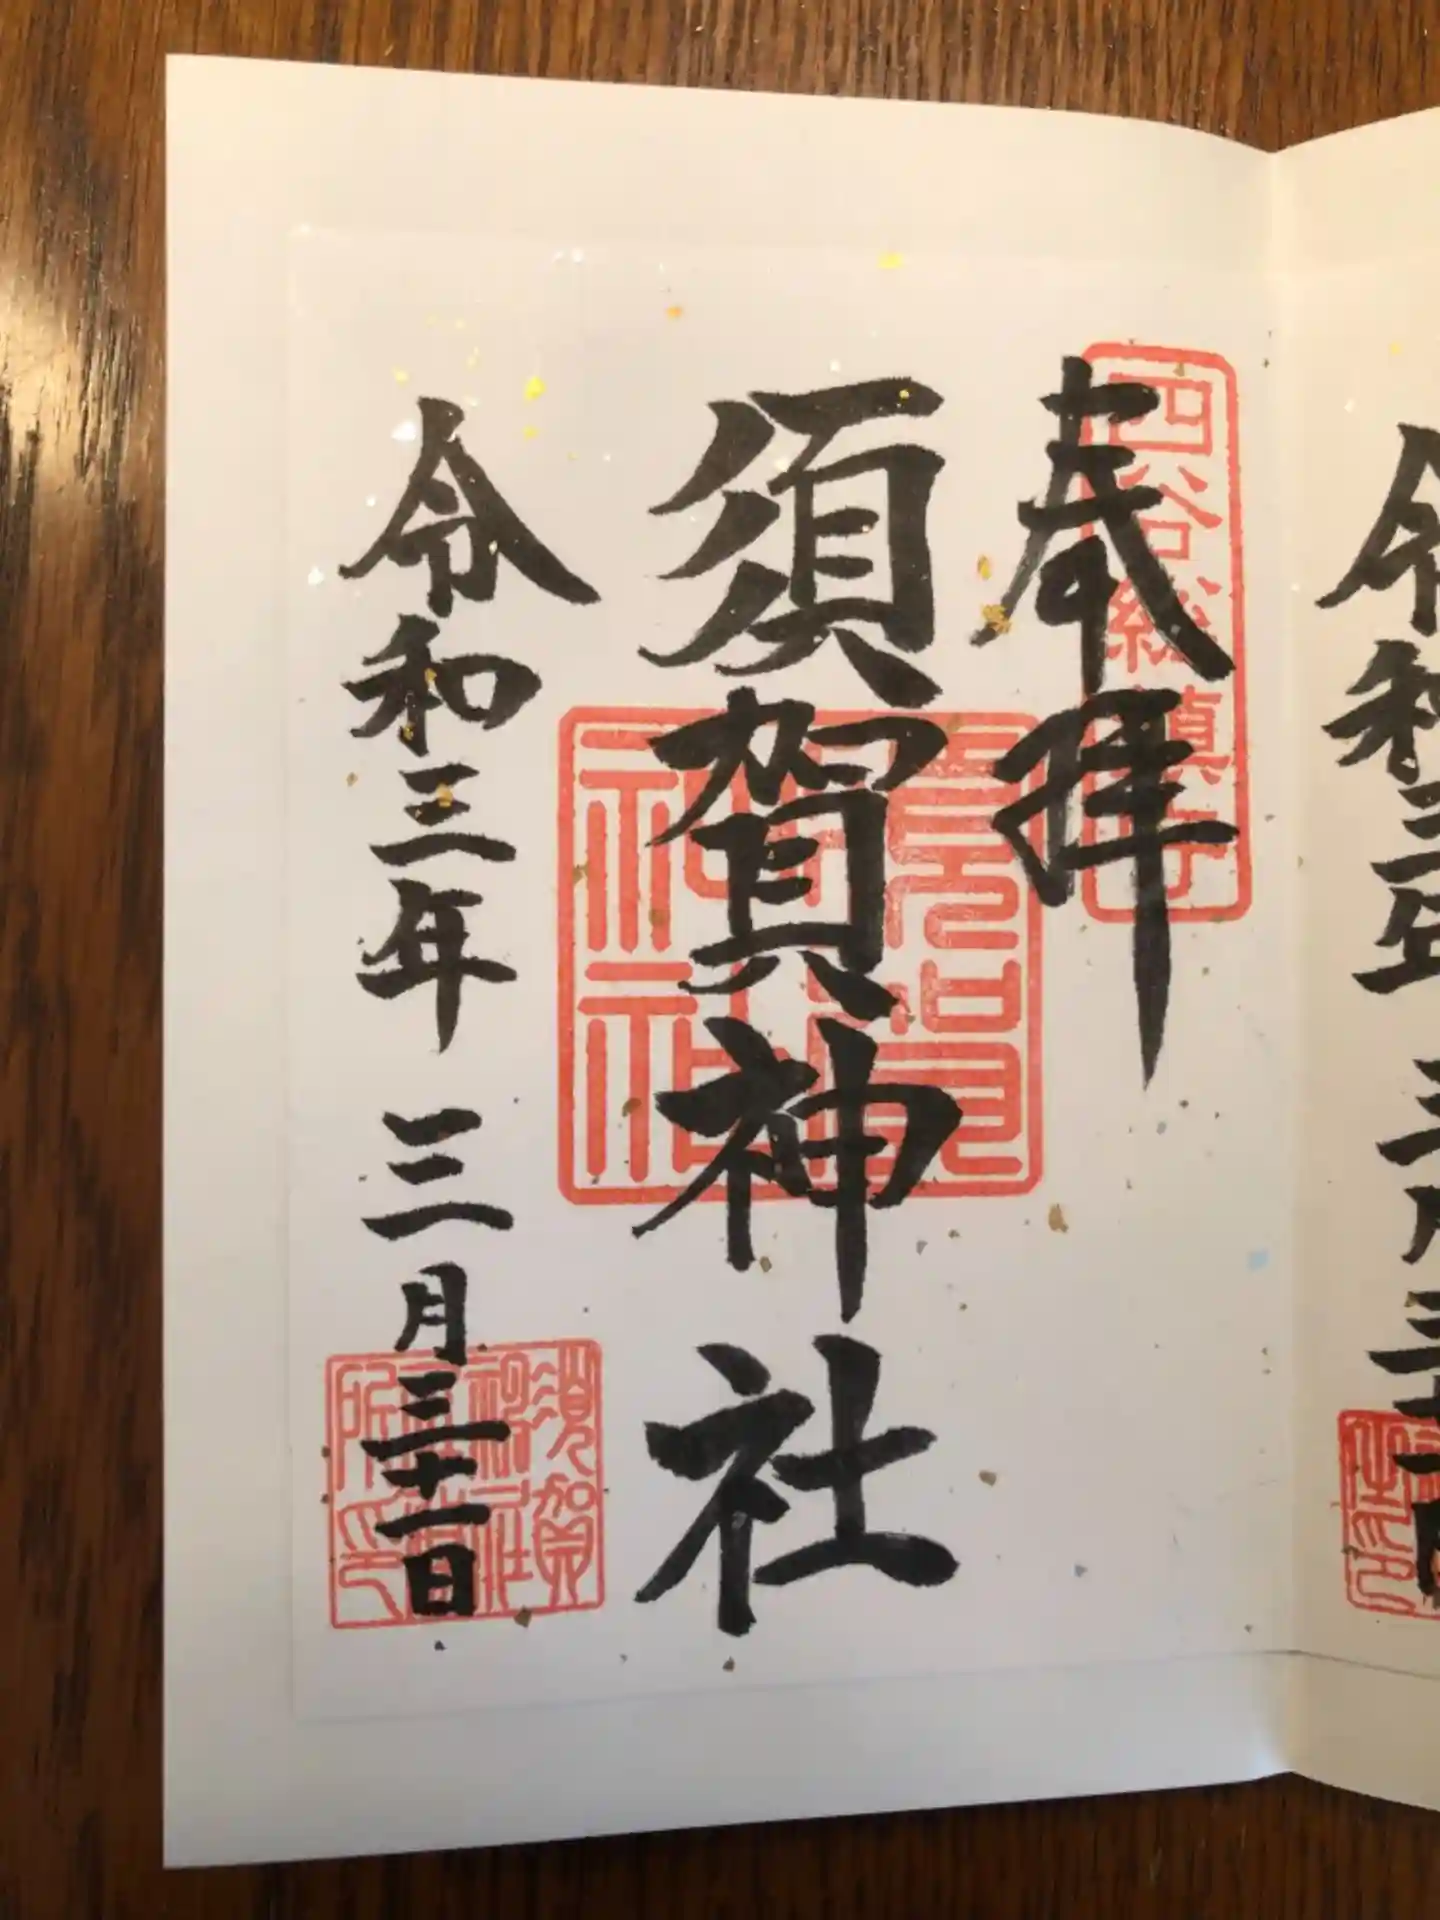 四谷総鎮守
奉拝
須賀神社
須賀神社
令和三年 三月三十一日
須賀神社
所印
令和三年 三月三十一日